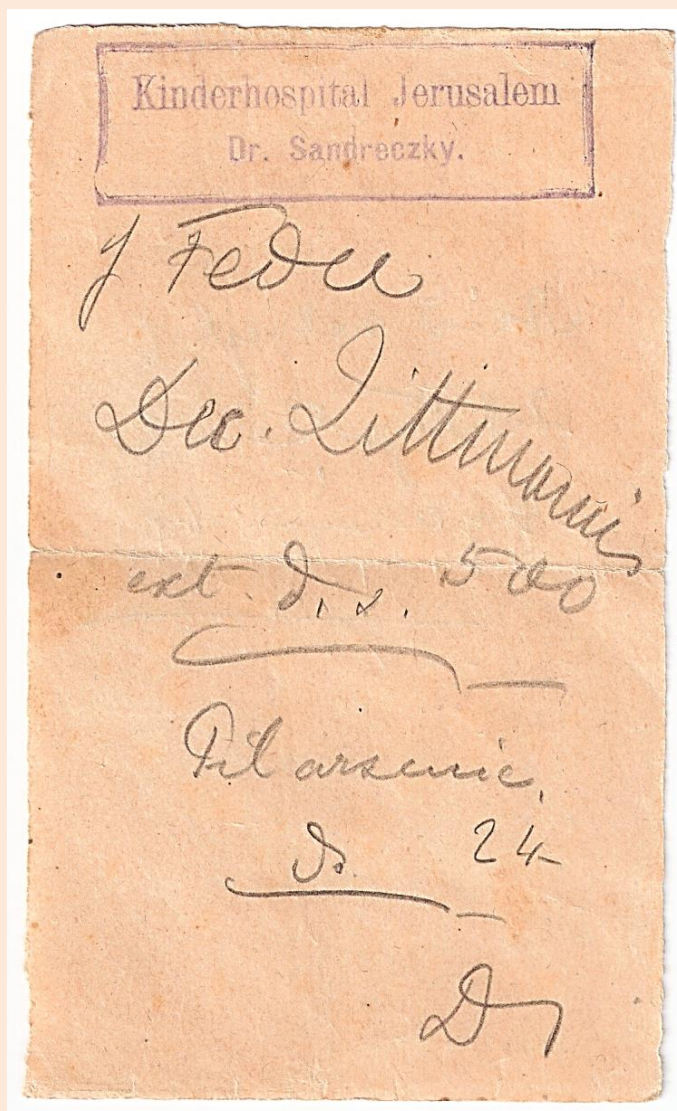 Kinderhospital Jerusalem
Dr. Sandreczky.
Dec. Zittmanni
ext. d. s. 500
Pil arsenic.
ds. 24
D